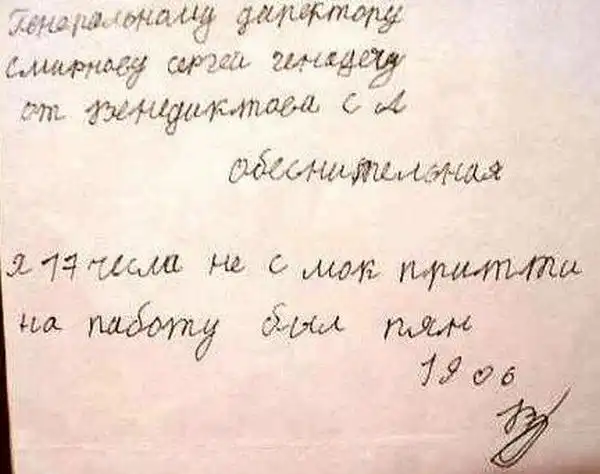 Генеральному директору
смирнову сергей генадечу
от Венедиктова с А
обеснительная
я 17 чесла не с мок притти
на паботу был пян
19 06